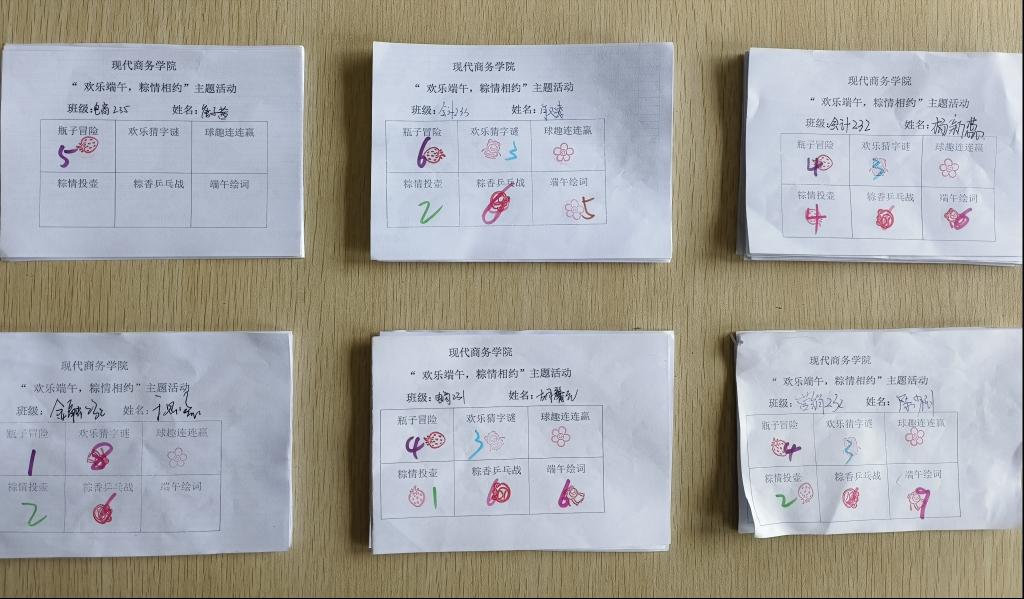 现代商务学院
“ 欢乐端午，粽情相约”主题活动
班级:电商235 姓名:
瓶子冒险 欢乐猜字谜 球趣连连赢
5
粽情投壶 粽香乒乓战 端午绘词
现代商务学院
“ 欢乐端午，粽情相约”主题活动
班级:会计235 姓名:
瓶子冒险 欢乐猜字谜 球趣连连赢
6 3
粽情投壶 粽香乒乓战 端午绘词
2 6 5
现代商务学院
“ 欢乐端午，粽情相约”主题活动
班级:会计232 姓名:杨新蕊
瓶子冒险 欢乐猜字谜 球趣连连赢
4 3
粽情投壶 粽香乒乓战 端午绘词
4 6
现代商务学院
“ 欢乐端午，粽情相约”主题活动
班级:金融232 姓名:
瓶子冒险 欢乐猜字谜 球趣连连赢
1 8
粽情投壶 粽香乒乓战 端午绘词
2 6
现代商务学院
“ 欢乐端午，粽情相约”主题活动
班级:电商231 姓名:
瓶子冒险 欢乐猜字谜 球趣连连赢
4 3
粽情投壶 粽香乒乓战 端午绘词
1 6 6
现代商务学院
“ 欢乐端午，粽情相约”主题活动
班级: 姓名:
瓶子冒险 欢乐猜字谜 球趣连连赢
4 3
粽情投壶 粽香乒乓战 端午绘词
2 9